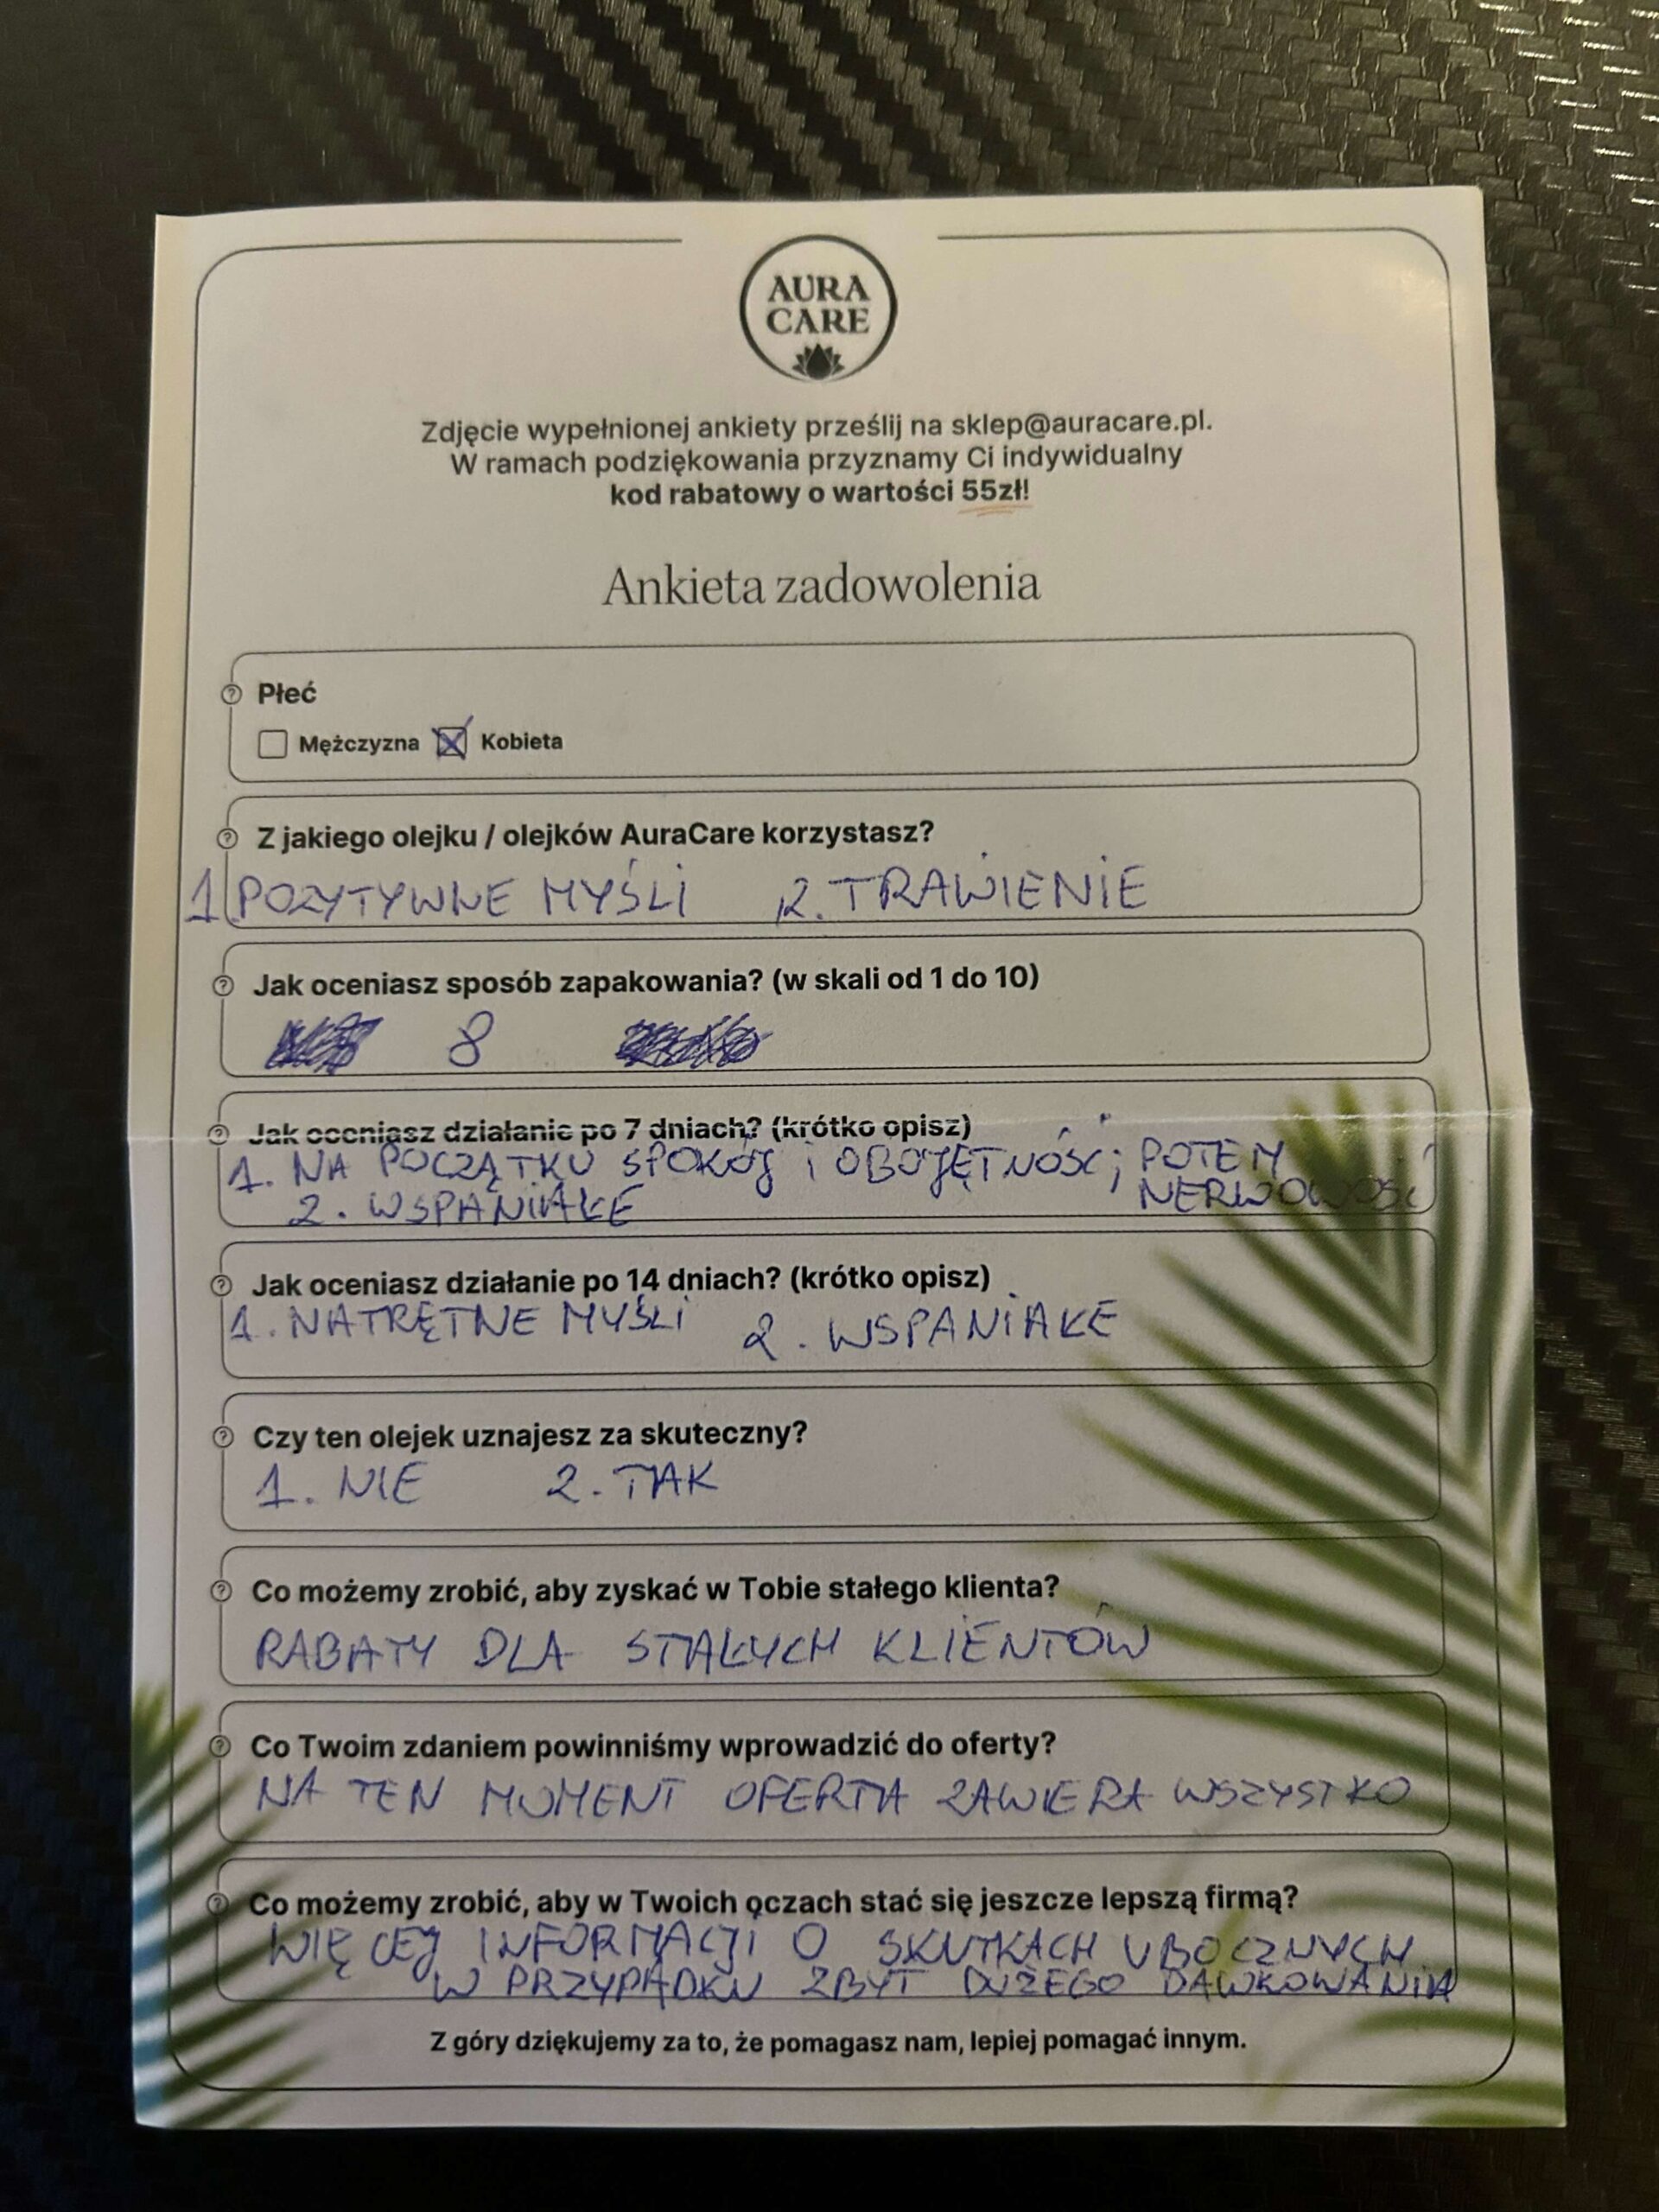 AURA
CARE
Zdjęcie wypełnionej ankiety prześlij na sklep@auracare.pl.
W ramach podziękowania przyznamy Ci indywidualny
kod rabatowy o wartości 55zł!
Ankieta zadowolenia
Płeć
Mężczyzna Kobieta
Z jakiego olejku / olejków AuraCare korzystasz?
1 POZYTYWNE MYŚLI 2. TRAWIENIE
Jak oceniasz sposób zapakowania? (w skali od 1 do 10)
8
Jak oceniasz działanie po 7 dniach? (krótko opisz)
1. NA POCZĄTKU SPOKÓJ i OBOJĘTNOŚĆ; POTEM
NERWOWOŚĆ
2. WSPANIAŁE
Jak oceniasz działanie po 14 dniach? (krótko opisz)
1. NATRĘTNE MYŚLI 2. WSPANIAŁE
Czy ten olejek uznajesz za skuteczny?
1. NIE 2. TAK
Co możemy zrobić, aby zyskać w Tobie stałego klienta?
RABATY DLA STAŁYCH KLIENTÓW
Co Twoim zdaniem powinniśmy wprowadzić do oferty?
NA TEN MOMENT OFERTA ZAWIERA WSZYSTKO
Co możemy zrobić, aby w Twoich oczach stać się jeszcze lepszą firmą?
WIĘCEJ INFORMACJI O SKUTKACH UBOCZNYCH
W PRZYPADKU ZBYT DUŻEGO DAWKOWANIA
Z góry dziękujemy za to, że pomagasz nam, lepiej pomagać innym.